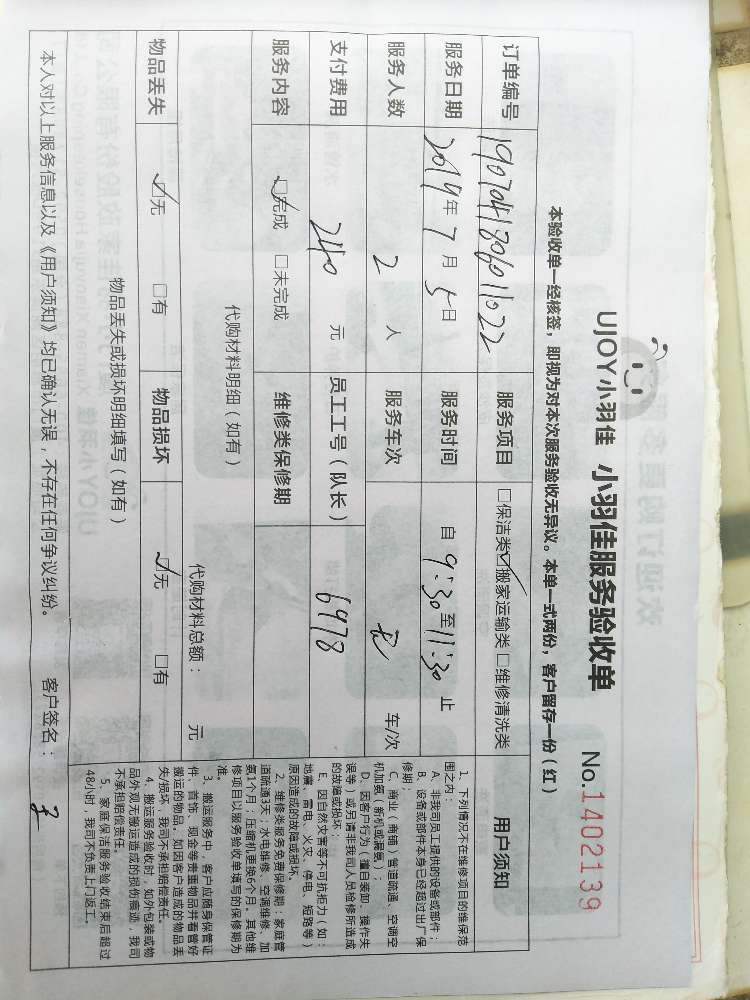 UJOY小羽佳 小羽佳服务验收单 No.1402139
本验收单一经核签，即视为对本次服务验收无异议。本单一式两份，客户留存一份（红）
订单编号 190704180601022 服务项目 □保洁类☑搬家运输类 □维修清洗类
服务日期 2019年7月5日 服务时间 自 9:30 至 11:30 止
服务人数 2 人 服务车次 车/次
支付费用 240 元 员工工号（队长） 6978
服务内容 ☑完成 □未完成 维修类保修期
代购材料明细（如有） 代购材料总额： 元
物品丢失 ☑无 □有 物品损坏 ☑无 □有
物品丢失或损坏明细填写（如有）
用户须知
1、下列情况不在维修项目的维保范
围之内：
A、非我司员工提供的设备或部件；
B、设备或部件本身已经超过出厂保
修期；
C、商业（商铺）管道疏通、空调空
机加氨（新机或漏氨）；
D、因客户行为（擅自装卸、操作失
误等）或另请非我司人员检修所造成
的故障或损坏；
E、因自然灾害等不可抗拒力（如：
地震、雷电、火灾、停电、短路等）
原因造成的故障或损坏。
2、维修类服务免费保修期：家庭管
道疏通3天；水电维修、空调维修、加
氨1个月；压缩机更换6个月。其他维
修项目以服务验收单填写的保修期为
准。
3、搬运服务中，客户应随身保管证
件、首饰、现金等贵重物品并看管好
搬运的物品。如因客户造成的物品丢
失/损坏，我司不承担赔偿责任。
4、搬运服务验收时，如外包装或物
品外观无搬运造成的损伤痕迹，我司
不承担赔偿责任。
5、家庭保洁服务验收结束后超过
48小时，我司不负责上门返工。
本人对以上服务信息以及《用户须知》均已确认无误，不存在任何争议纠纷。 客户签名：